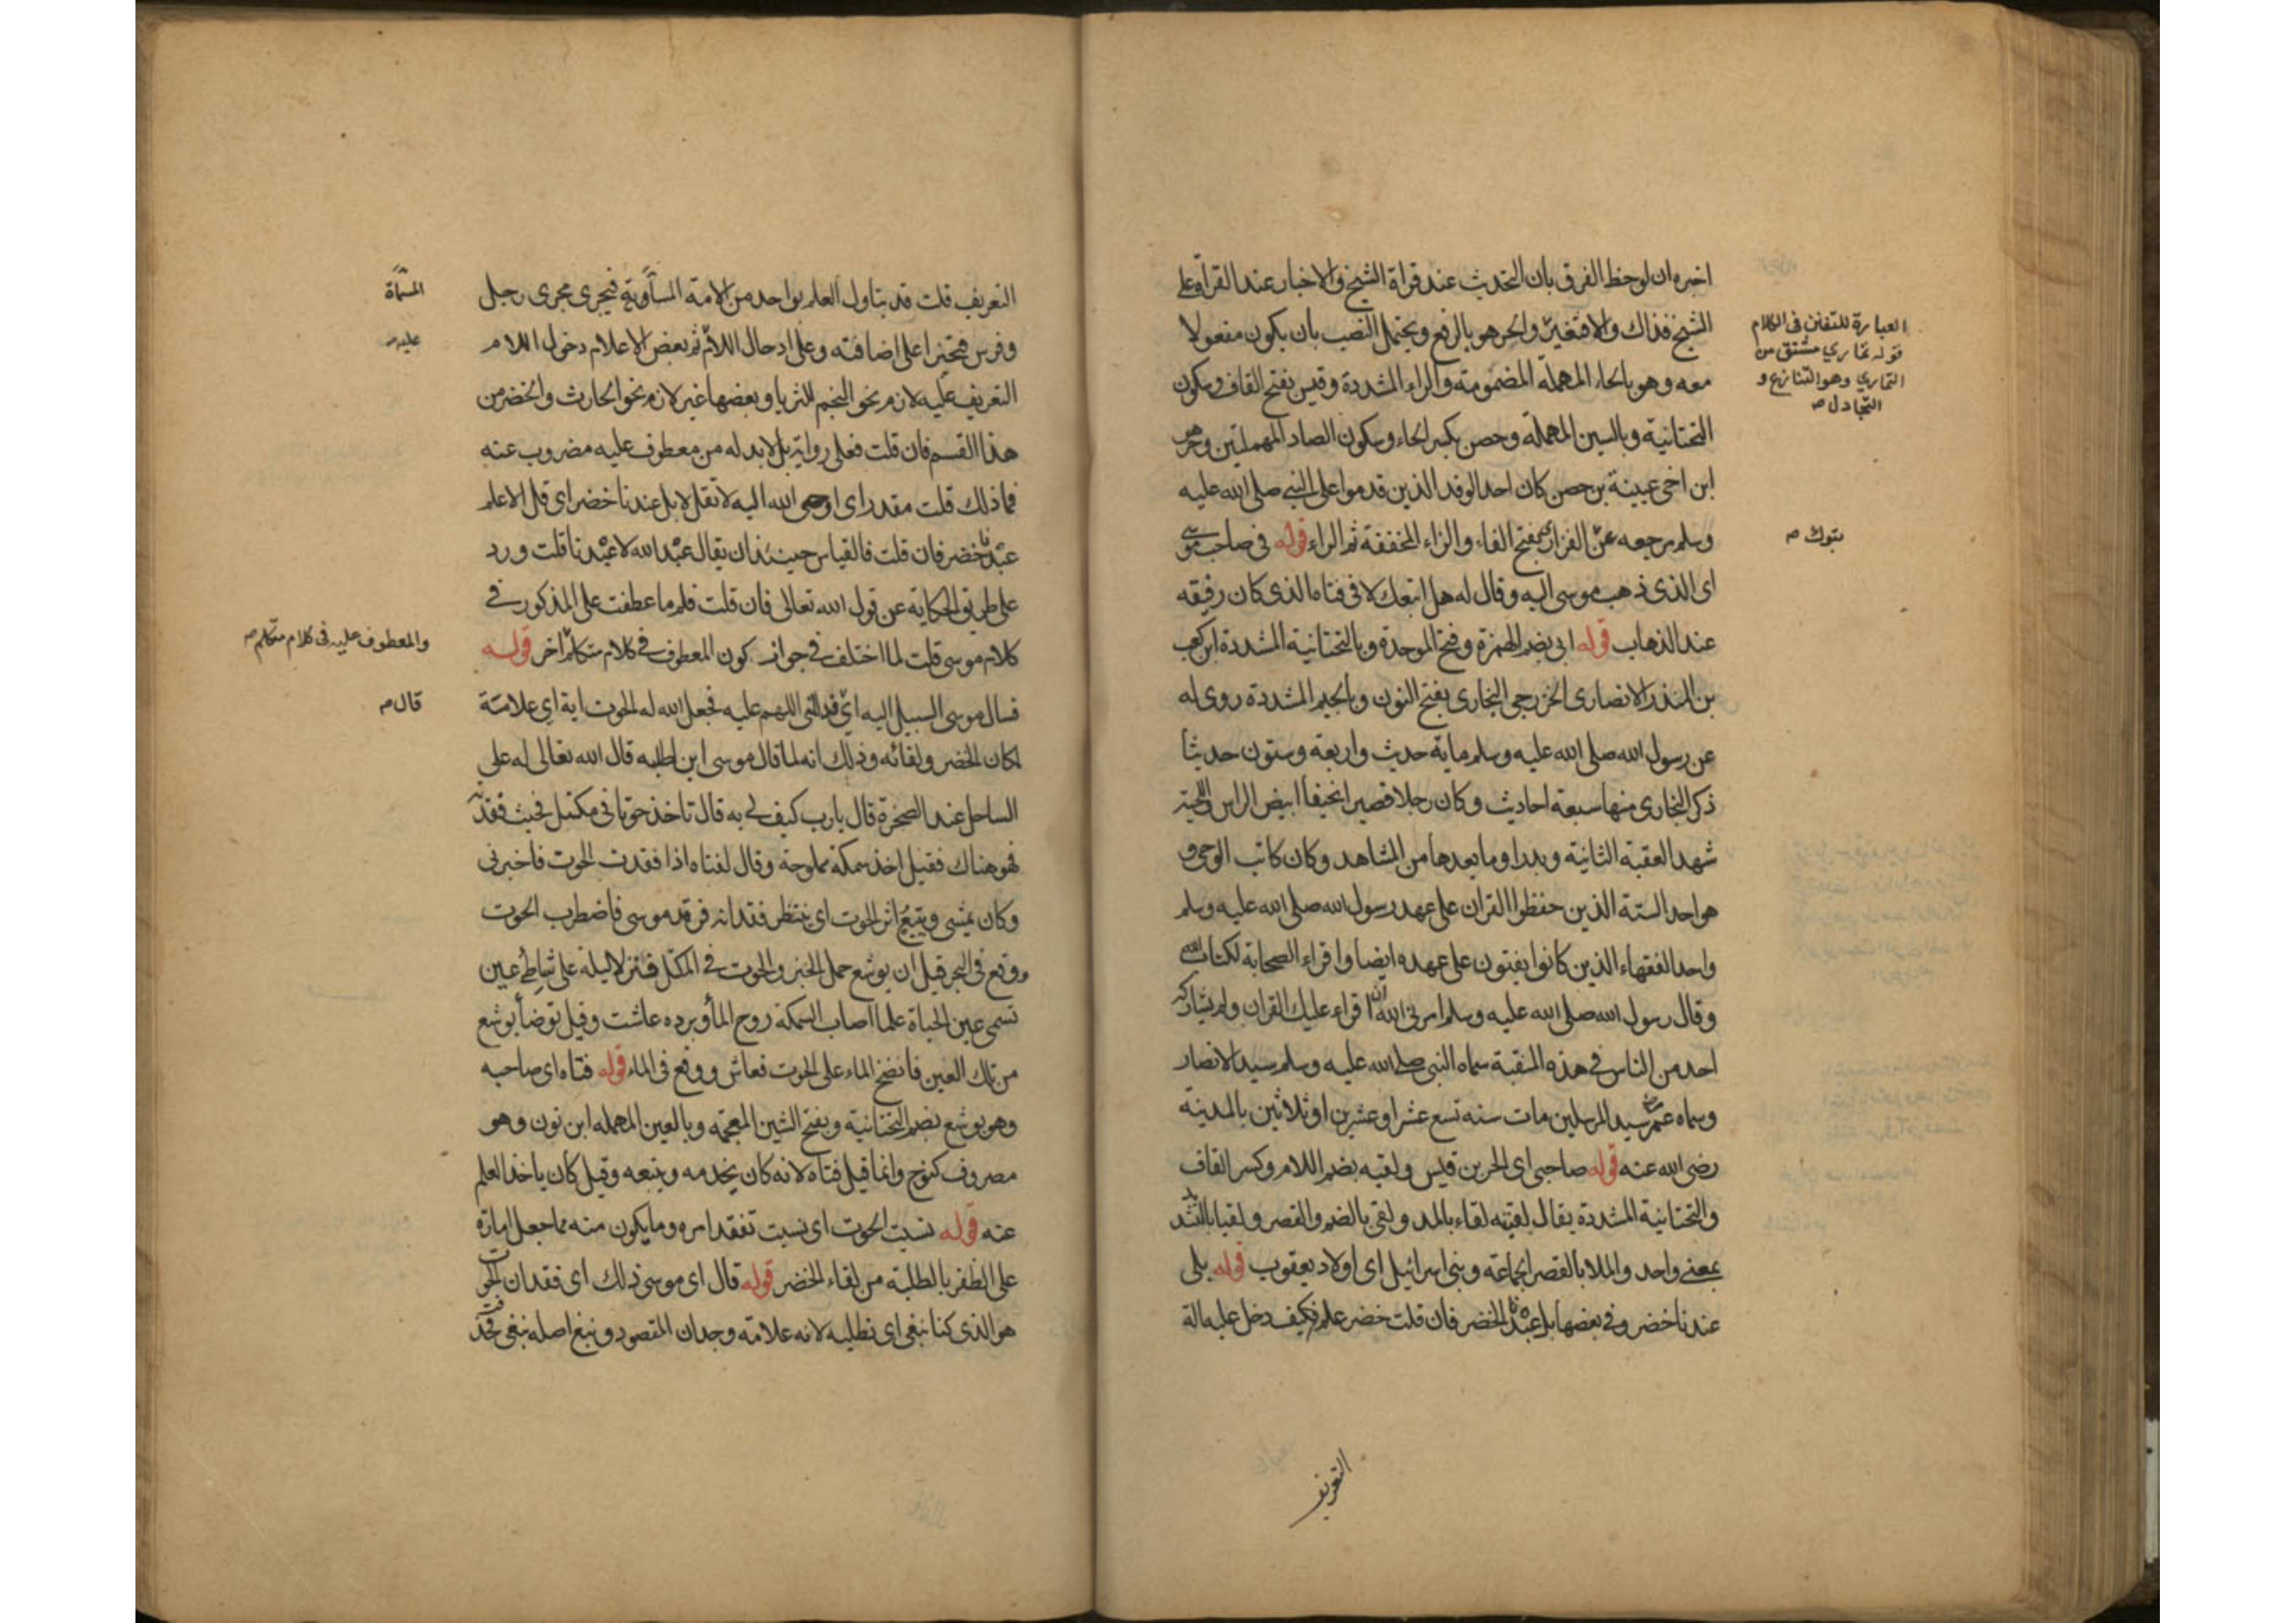 اخبره ان لوحظ الفرق بان التحديث عند قراة الشيخ والاخبار عند القراة على
الشيخ فذاك والا فتغيير والحر هو بالرفع ويحتمل النصب بان يكون مفعولا
معه وهو بالحاء المهملة المضمومة والراء المشددة وقيس بفتح القاف وسكون
التحتانية وبالسين المهملة وحصن بكسر الحاء وسكون الصاد المهملتين وهو
ابن اخى عيينة بن حصن كان احد الوفد الذين قدموا على النبي صلى الله عليه
وسلم مرجعه من الفزارى بفتح الفاء والزاء المخففة ثم الراء قوله فى صاحب موسى
اى الذى ذهب موسى اليه وقال له هل اتبعك لا فى فتاه الذى كان رفيقه
عند الذهاب قوله ابى بضم الهمزة وفتح الموحدة وبالتحتانية المشددة ابن كعب
بن المنذر الانصارى الخزرجى النجارى بفتح النون وبالجيم المشددة روى له
عن رسول الله صلى الله عليه وسلم ماية حديث واربعة وستون حديثا
ذكر البخارى منها سبعة احاديث وكان رجلا قصيرا نحيفا ابيض الراس واللحية
شهد العقبة الثانية وبدرا وما بعدها من المشاهد وكان كاتب الوحى و
هو احد الستة الذين حفظوا القران على عهد رسول الله صلى الله عليه وسلم
واحد الفقهاء الذين كانوا يفتون على عهده ايضا واقراء الصحابة لكتاب الله
وقال رسول الله صلى الله عليه وسلم امرنى الله ان اقراء عليك القران ولم يشاركه
احد من الناس فى هذه المنقبة سماه النبى صلى الله عليه وسلم سيد الانصار
وسماه عمر سيد المرسلين مات سنه تسع عشر او عشرين او ثلاثين بالمدينة
رضى الله عنه قوله صاحبى اى الحر بن قيس ولقيه بضم اللام وكسر القاف
والتحتانية المشددة يقال لقيته لقاء بالمد ولقى بالضم والقصر ولقيا بالتشديد
بمعنى واحد والملا بالقصر الجماعة وبنى اسرائيل اى اولاد يعقوب قوله بلى
عندنا خضر وفى بعضها بل عبدنا الخضر فان قلت خضر علم فكيف دخل عليه الة
العبارة للتفنن فى الكلام
قوله تمارى مشتق من
التمارى وهو التنازع و
التجادل صح
تبوك صح
التعريف
التعريف قلت قد يتاول العلم بواحد من الامة المسماة به فيجرى مجرى رجل
وفرس فيجترا على اضافته وعلى ادخال اللام ثم بعض الاعلام دخول اللام
التعريف عليه لازم نحو النجم للثريا وبعضها غير لازم نحو الحارث والخضر من
هذا القسم فان قلت فعلى رواية بل لا بد له من معطوف عليه مضروب عنه
فما ذلك قلت مقدر اى اوحى الله اليه لا تقل لا بل عندنا خضر اى قل الاعلم
عبدنا خضر فان قلت فالقياس حينئذ ان يقال عبد الله لا عبدنا قلت ورد
على طريق الحكاية عن قول الله تعالى فان قلت فلم ما عطفت على المذكور فى
كلام موسى قلت لما اختلف فى جواز كون المعطوف فى كلام متكلم اخر قوله
فسال موسى السبيل اليه اى فقال اللهم عليه فجعل الله له الحوت اية اى علامة
لمكان الخضر ولقائه وذلك انه لما قال موسى اين اطلبه قال الله تعالى له على
الساحل عند الصخرة قال يا رب كيف لى به قال تاخذ حوتا فى مكتل فحيث فقدته
فهو هناك فقيل اخذ سمكة مملوحة وقال لفتاه اذا فقدت الحوت فاخبرنى
وكان يمشى ويتبع اثر الحوت اى ينتظر فقدانه فرقد موسى فاضطرب الحوت
ووقع فى البحر قيل ان يوشع حمل الخبز والحوت فى المكتل فنزلا ليلة على شاطئ عين
تسمى عين الحياة فلما اصاب السمكة روح الما وبرده عاشت وقيل توضا يوشع
من تلك العين فانضخ الماء على الحوت فعاش ووقع فى الماء قوله فتاه اى صاحبه
وهو يوشع بضم التحتانية وبفتح الشين المعجمة وبالعين المهمله ابن نون وهو
مصروف كنوح وانما قيل فتاه لانه كان يخدمه ويتبعه وقيل كان ياخذ العلم
عنه قوله نسيت الحوت اى نسيت تفقد امره وما يكون منه مما جعل امارة
على الظفر بالطلبة من لقاء الخضر قوله قال اى موسى ذلك اى فقدان الحوت
هو الذى كنا نبغى اى نطلبه لانه علامة وجدان المقصود ونبغ اصله نبغى فحذفت
المسماة
عليه صح
والمعطوف عليه فى كلام متكلم صح
قال صح